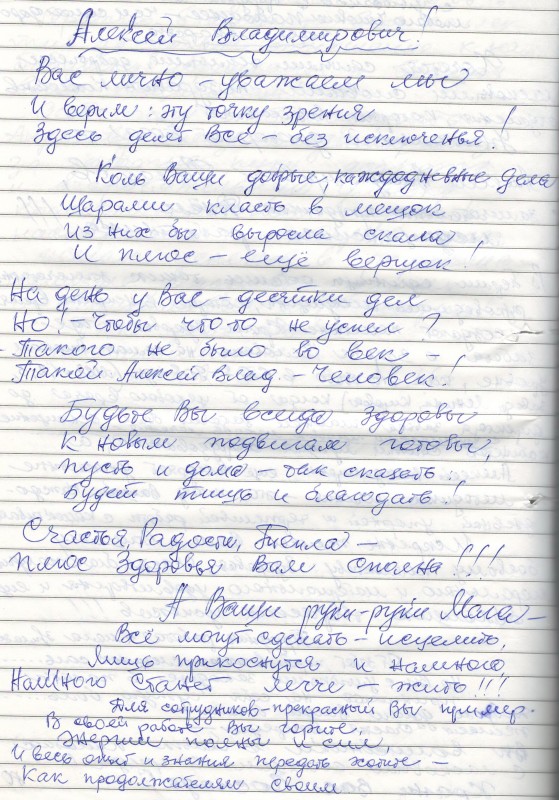 Алексей Владимирович!
Вас лично – уважаем мы
И верим: эту точку зрения
Здесь делят Все – без исключенья!
Коль Ваши добрые, каждодневные дела
Шарами класть в мешок
Из них бы выросла скала,
И плюс – ещё вершок!
На день у Вас – десятки дел
Но! – Чтобы что-то не успел?
Такого не было во век –
Такой Алексей Влад. – Человек!
Будьте Вы всегда здоровы
К новым подвигам готовы,
Пусть и дома – так сказать:
Будет тишь и благодать!
Счастья, Радости, Тепла –
Плюс Здоровья Вам Сполна!!!
А Ваши руки – руки Мага –
Всё могут сделать – исцелить,
Лишь прикоснутся и намного,
Намного Станет легче – жить!!!
Для сотрудников – прекрасный Вы пример.
В своей работе Вы горите,
Энергии полны и сил,
И весь опыт и знания передать хотите –
Как продолжателям своим